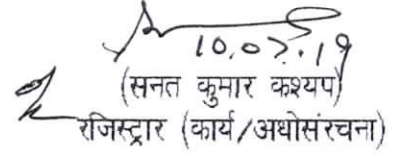 10.07.19
(सनत कुमार कश्यप)
रजिस्ट्रार (कार्य/अधोसंरचना)